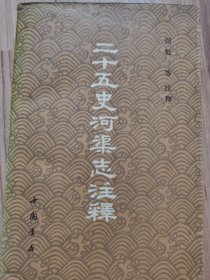 二十五史河渠志注釋
周魁一等 注释
中国书店